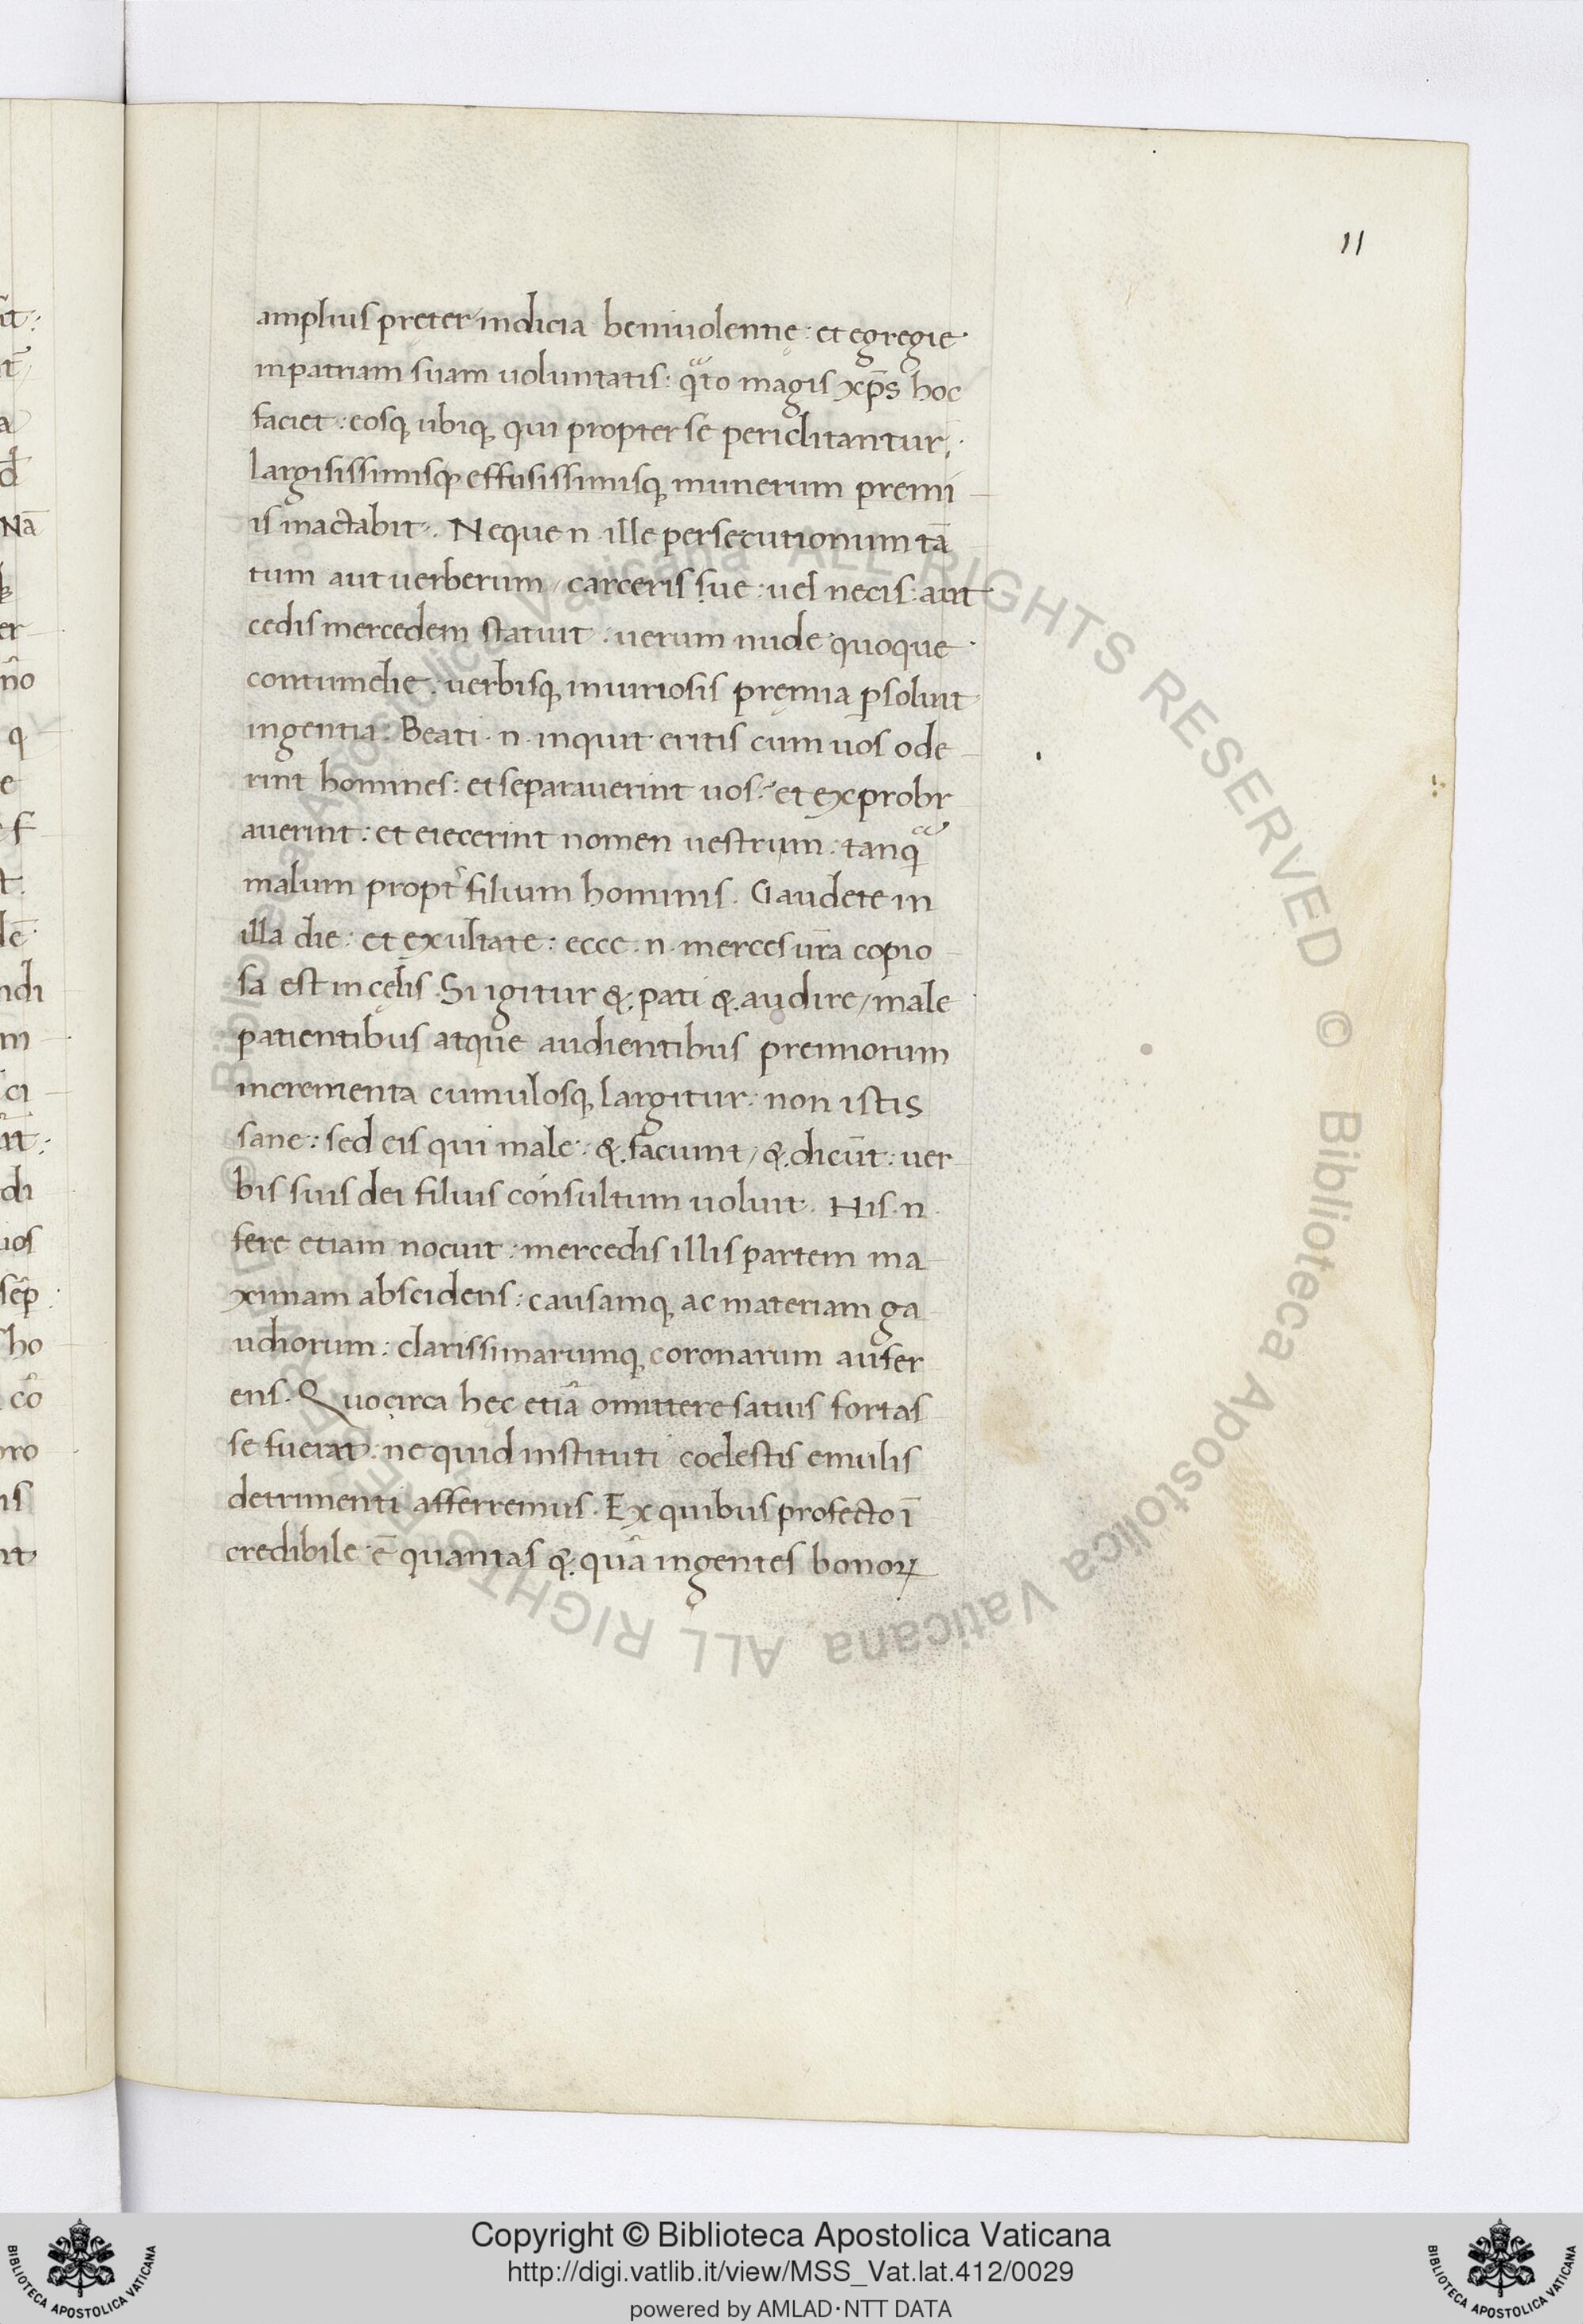 11
amplius pręter indicia beniuolentię: et egregie
in patriam suam uoluntatis: qͣto magis xp̅s hoc
faciet: eosq; ubiq; qui propter se periclitantur:
largisissimisq; effusissimisq; munerum premi
is mactabit. Neque .n. ille persecutionum tā
tum aut uerberum, carceris sue: uel necis: aut
cedis mercedem statuit: uerum nude quoque
contumelie: uerbisq; iniuriosis pręmia ꝑsoluit
ingentia: Beati .n. inquit eritis cum uos ode
rint homines: et separauerint uos: et exprobr
auerint: et eiecerint nomen uestrum: tanqͣ
malum propt̉ filium hominis. Gaudete in
illa die: et exultate: ecce .n. merces ur̄a copio
sa est in cęlis. Si igitur &. pati &. audire, male
patientibus atque audientibus premiorum
incrementa cumulosq; largitur: non istis
sane: sed eis qui male: &. faciunt, &. dicūt: uer
bis suis dei filius consultum uoluit. His .n.
fere etiam nocuit: mercedis illis partem ma
ximam abscidens: causamq; ac materiam ga
udiorum: clarissimarumq; coronarum aufer
ens. Quocirca hęc etiā omittere satius fortas
se fuerat: ne quid instituti coelestis emulis
detrimenti afferremus. Ex quibus profecto ī
credibile ē quantas &. quā ingentes bonoꝝ
Copyright © Biblioteca Apostolica Vaticana
http://digi.vatlib.it/view/MSS_Vat.lat.412/0029
powered by AMLAD·NTT DATA
BIBLIOTECA APOSTOLICA VATICANA
BIBLIOTECA APOSTOLICA VATICANA